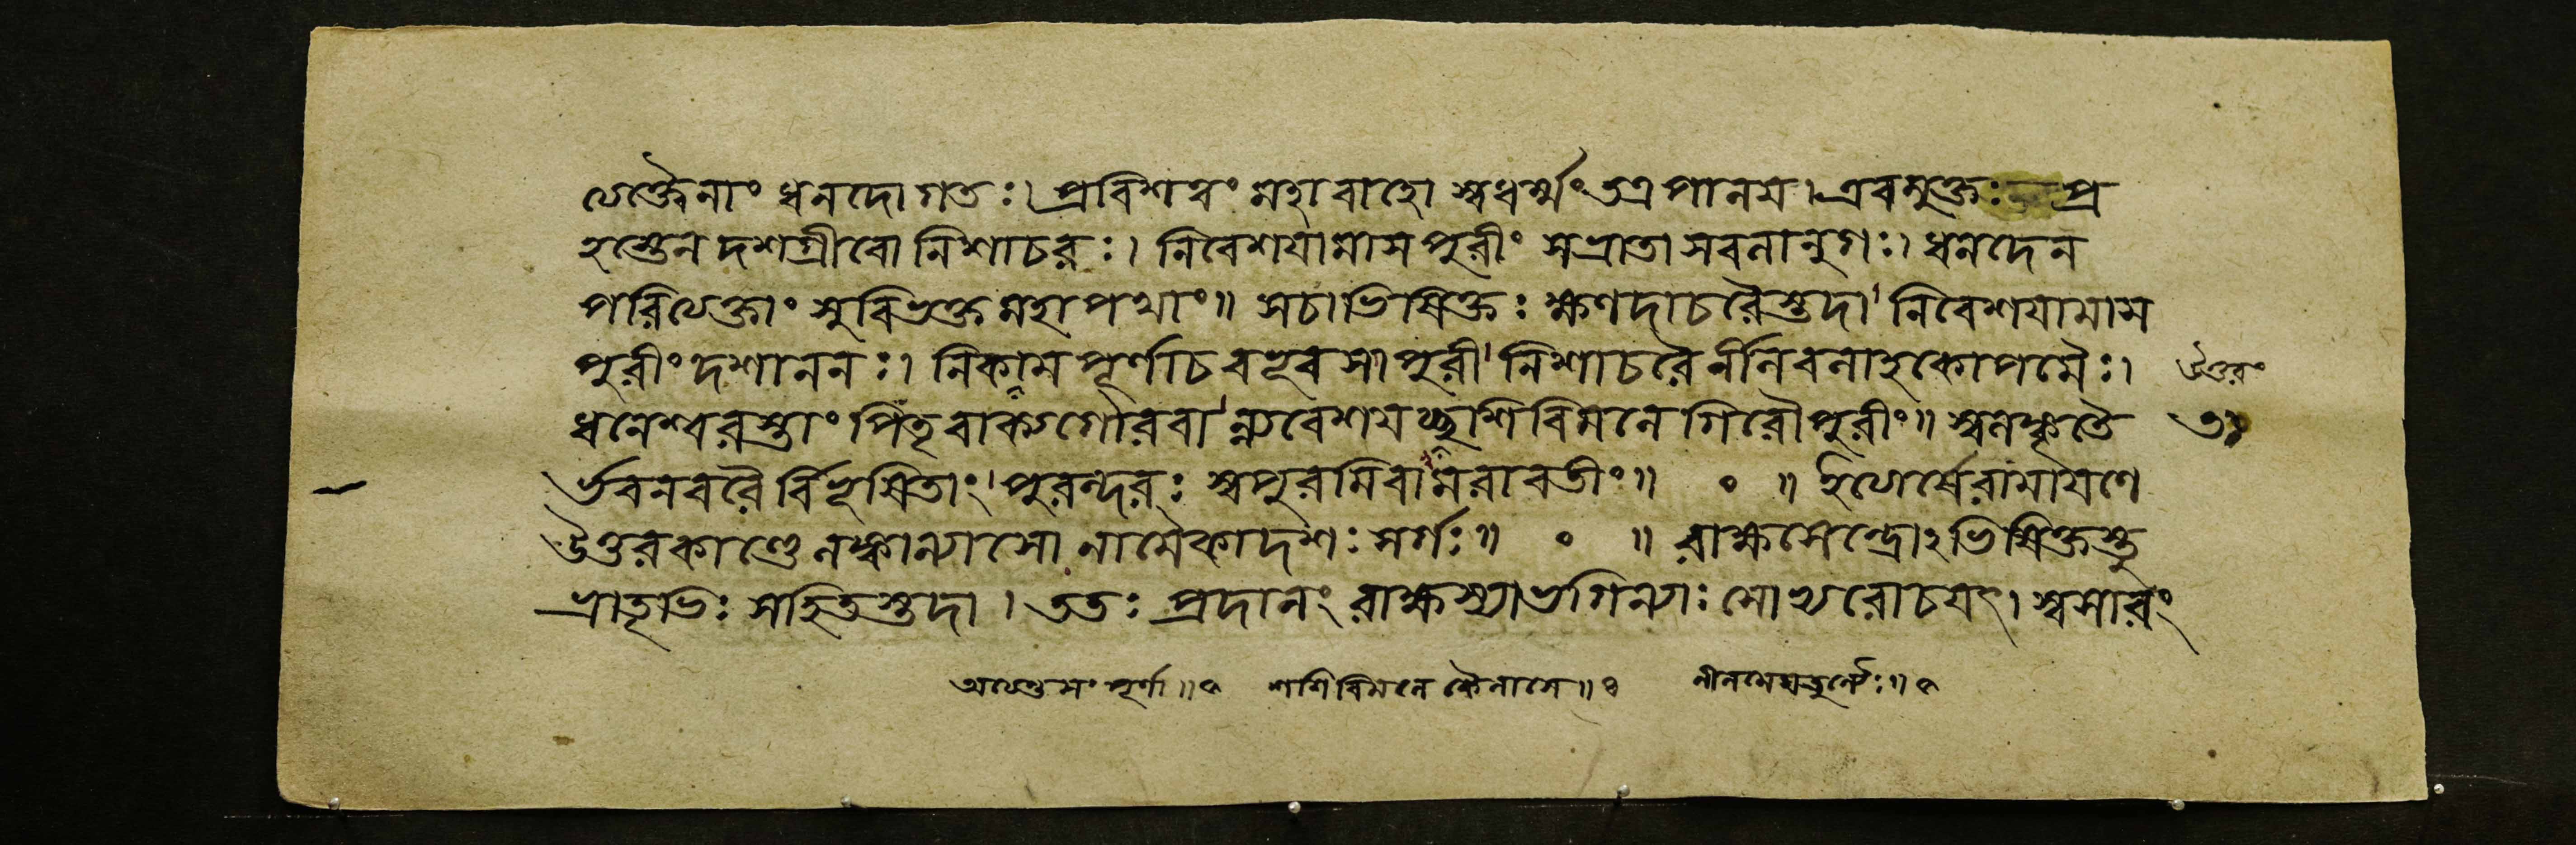 ত্যক্ত্বৈনাং ধনদো গতঃ। প্রবিশত্বং মহাবাহো স্বধর্ম্মং তত্র পালয়। এবমুক্তঃ প্র
হস্তেন দশগ্রীবো নিশাচরঃ। নিবেশযামাস পুরীং সভ্রাতা সবলানুগঃ। ধনদেন
পরিত্যক্তাং সুবিভক্তমহাপথাং॥ সচাভিষিক্তঃ ক্ষণদাচরৈস্তদা নিবেশযামাস
পুরীং দশাননঃ। নিকামপূর্ণাচ বভূব সা পুরী নিশাচরৈর্নীলবলাহকোপমৈঃ। উত্তরং
ধনেশ্বরস্ত্বাং পিতৃবাক্যগৌরবান্ন্যবেশযচ্ছশিবিমলে গিরৌ পুরীং॥ স্বলঙ্কৃতৈ
র্ভবনবরৈর্বিভূষিতাং পুরন্দরঃ স্বপুরমিবামরাবতীং॥ ০ ॥ ইত্যার্ষে রামাযণে
উত্তরকাণ্ডে লঙ্কান্যাসো নামৈকাদশঃ সর্গঃ॥ ০ ॥ রাক্ষসেন্দ্রোঽভিষিক্তস্তু
ভ্রাতৃভিঃ সহিতস্তদা। ততঃ প্রদানং রাক্ষস্যা ভগিন্যাঃ সোঽভ্যরোচযৎ। স্বসারং
অত্যন্তসংপূর্ণা॥ শশিবিমলে কৈলাসে॥ নীলমেঘতুল্যৈঃ॥